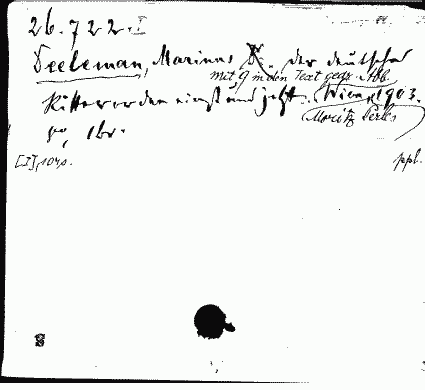 26.722.I
Peeleman, Marinus der deutsche
mit 9 in den Text gedr. Abb.
Ritterorden einst und jetzt. Wien, 1903.
Moritz Perles
8°, 1 br.
[3], 104 s. ppl.
S